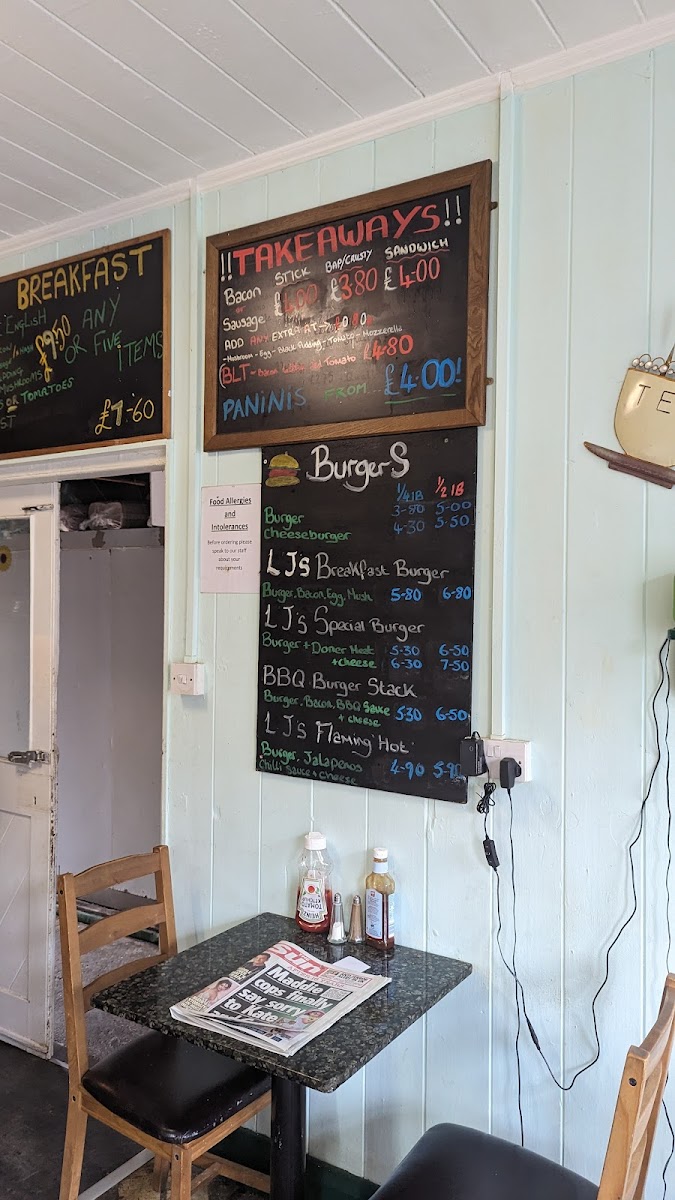 BREAKFAST
ENGLISH
£9.50
ANY
OR FIVE
ITEMS
MUSHROOMS
OR TOMATOES
£7-60
!!TAKEAWAYS!!
STICK BAP/CRUSTY SANDWICH
Bacon
or
Sausage £4.00 £3.80 £4.00
ADD ANY EXTRA AT → £0.80
-Mushroom - Egg - Black Pudding - Tomato - Mozzerella
(BLT - Bacon Tomato £4.80
PANINIS FROM £4.00!
BurgerS
1/4lB 1/2 lB
Burger 3-80 5-00
Cheeseburger 4-30 5-50
LJ's Breakfast Burger
Burger, Bacon, Egg, Mush 5-80 6-80
LJ's Special Burger
Burger + Doner Meat 5-30 6-50
+ cheese 6-30 7-50
BBQ Burger Stack
Burger, Bacon, BBQ Sauce
+ cheese 5-30 6-50
LJ's Flaming Hot
Burger, Jalapenos
Chilli Sauce + Cheese 4-90 5-90
Food Allergies
and
Intolerances
Before ordering please
speak to our staff
about your
requirements
TE
HEINZ
TOMATO
KETCHUP
Sun
Maddie
cops finally
say sorry
to Kate